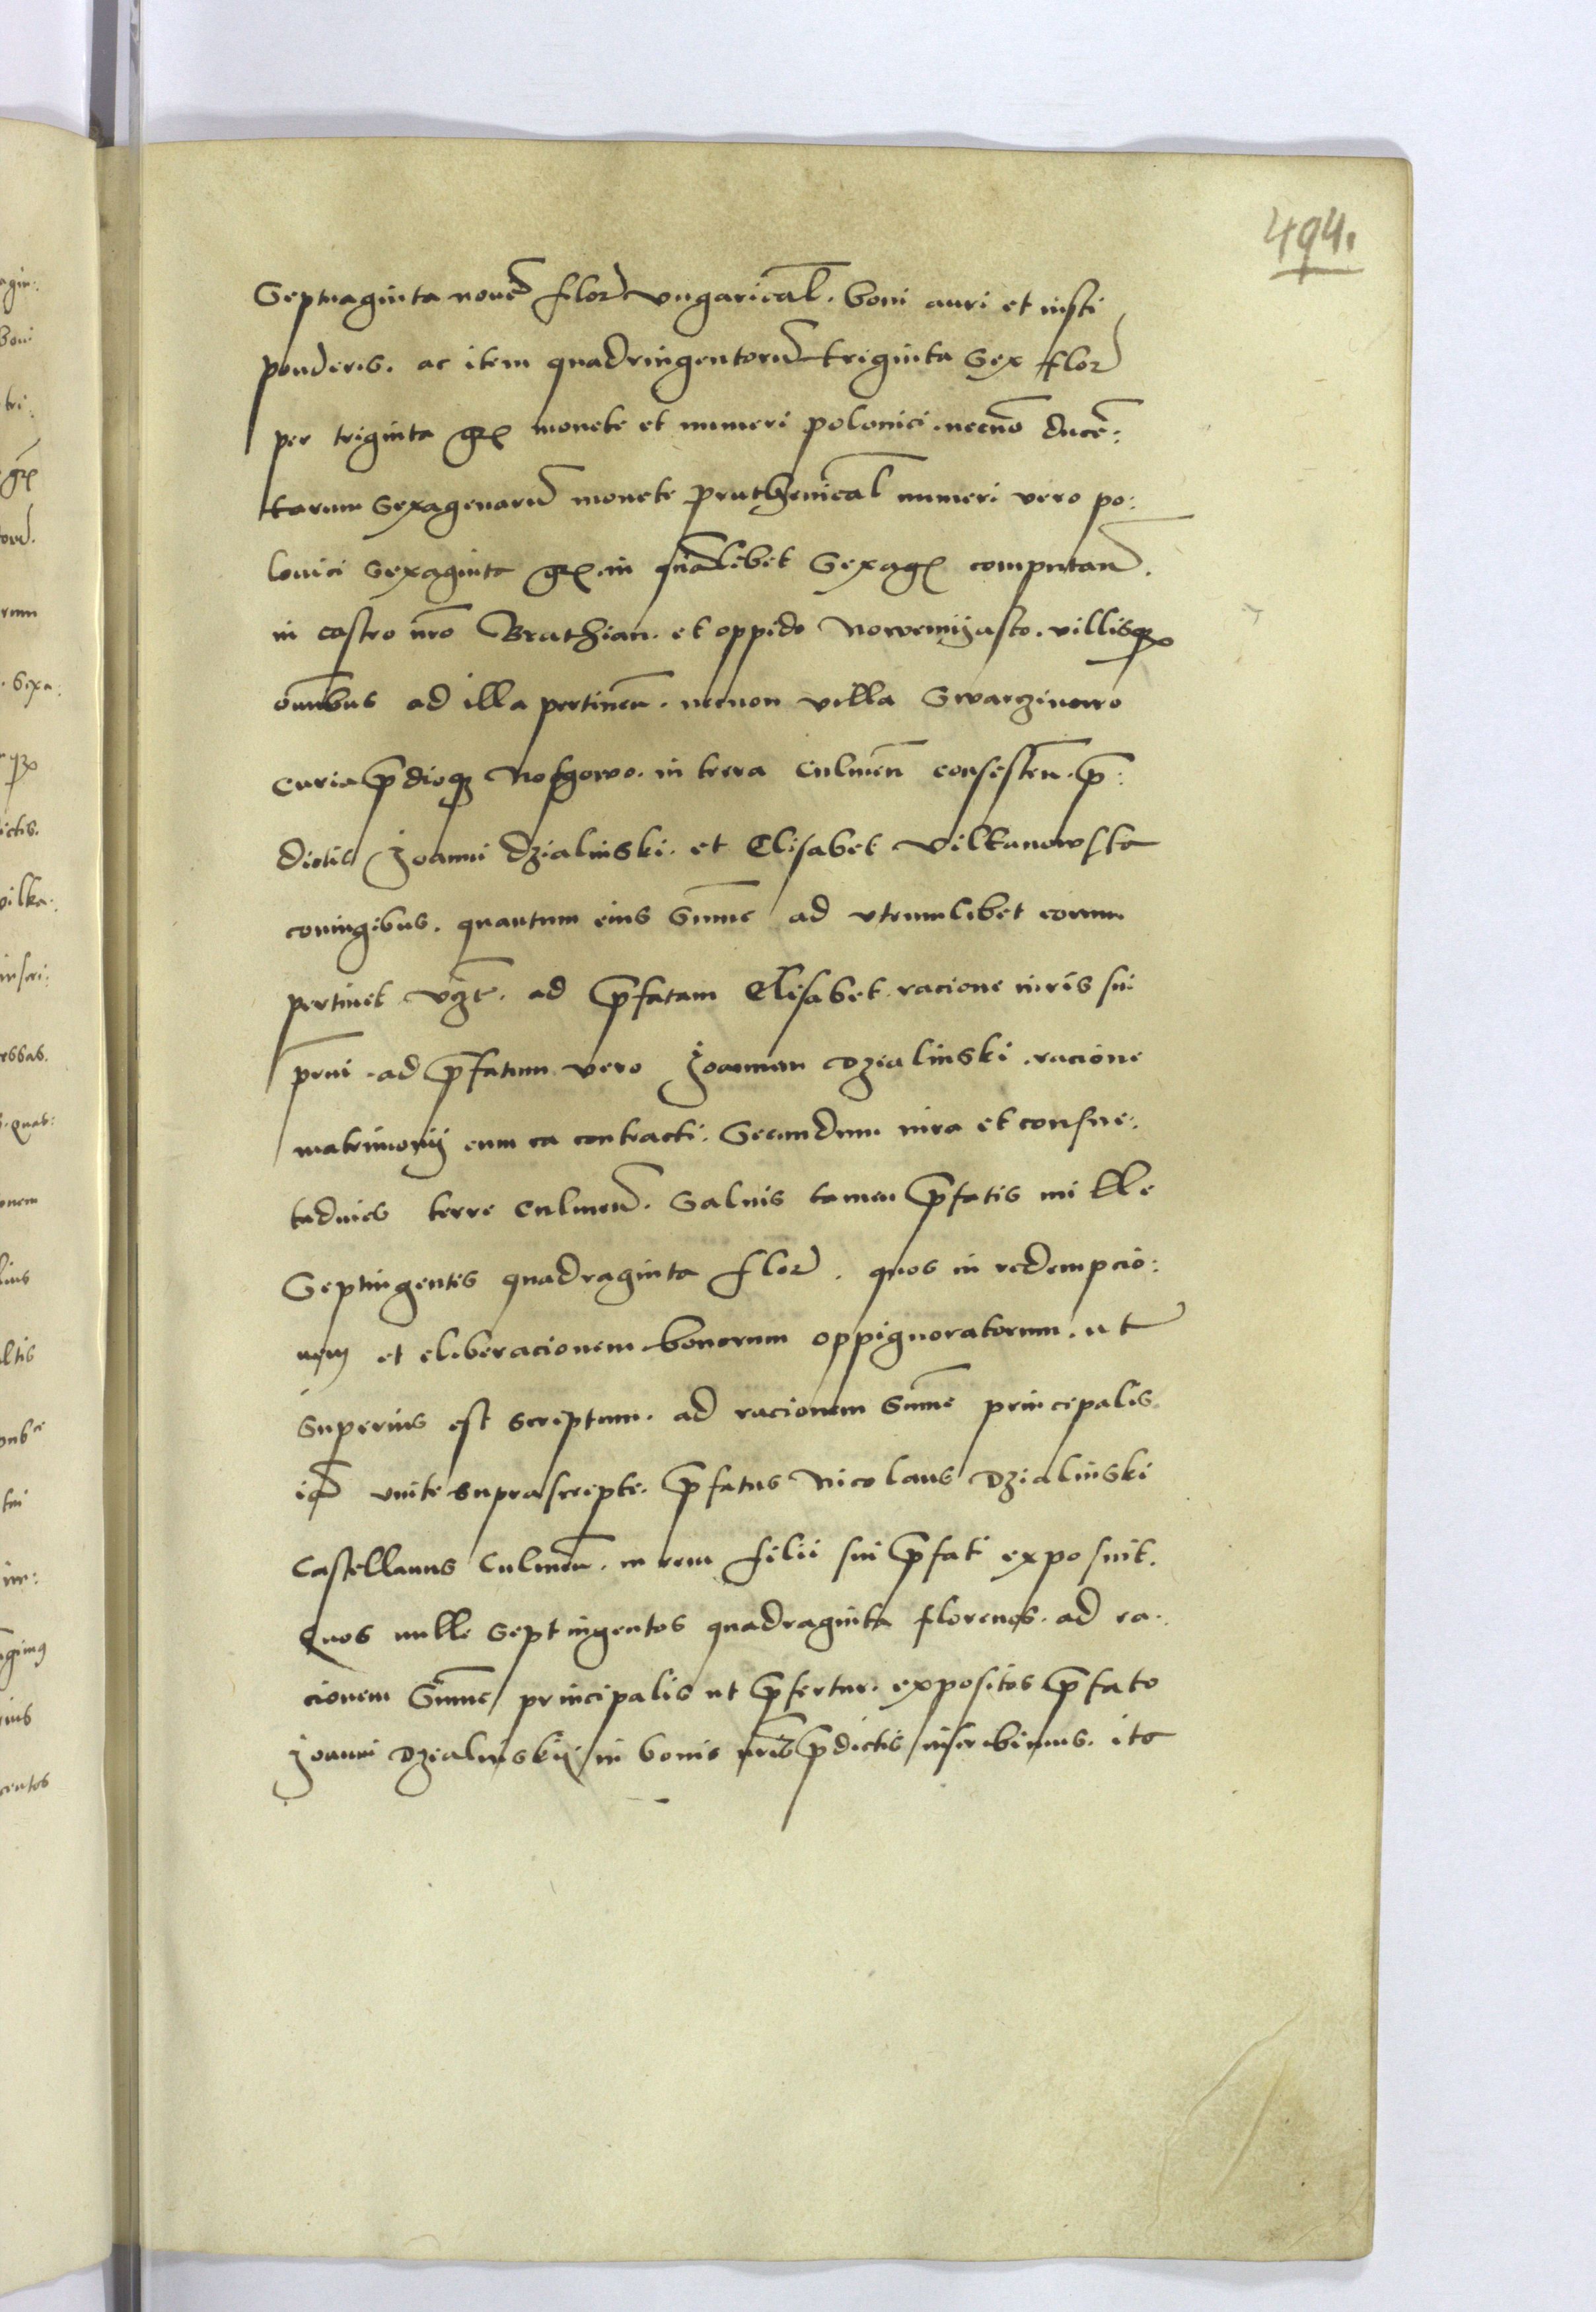 494.
Septuaginta nouē flor̄ vngarical̄. boni auri et iusti
ponderis. ac item quadringentorū triginta Sex flor̄
per triginta gr̄ monete et numeri polonici necnō ducē:
tarum Sexagenarū monete pruthenical̄ numeri vero po:
lonici Sexaginta gr̄ in qualibet Sexaḡ computan̄.
in castro nr̄o Brathian. et oppido Nowemyasto. villisq3
om̄ibus ad illa pertinen̄. necnon villa Swarzinowo
curia p̄dioq3 Nosgowo. in terra Culmen̄ consisten̄. p̄:
dictis Joanni Dzialinski. et Elisabet Vilkanowska
coniugibus. quantum eius Sum̄e ad vtrumlibet eorum
pertinet vz̄t. ad p̄fatam Elisabet racione iuris sui
pr̄ni. ad p̄fatum vero Joannem Dzialinski racione
matrimonij cum ea contracti. Secundum iura et consue:
tudines terre Culmen̄. Saluis tamen p̄fatis mille
Septingentis quadraginta flor̄. quos in redempcio:
nem et eliberacionem bonorum oppignoratorum. ut
Superius est scriptum. ad racionem Sum̄e principalis
iā vnite suprascripte. p̄fatus Nicolaus Dzialinski
Castellanus Culmen̄. in rem filii sui p̄fati exposuit.
Quos mille Septingentos quadraginta florenos. ad ra:
cionem Sum̄e principalis ut p̄fertur. expositos p̄fato
Joanni Dzialinskij in bonis nr̄is p̄dictis inscribimus. ita